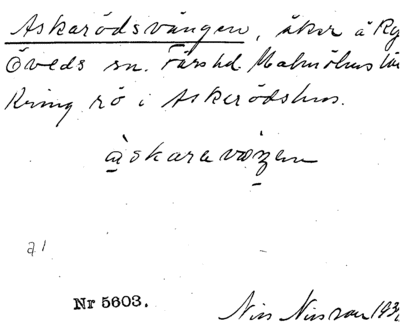 Askarödsvången, åker å Ry
Öveds sn. Färs hd. Malmöhus län
Kring rö i Askerödshus.
àskaravɶŋen
a1
Nr 5603.
Nils Nilsson 193